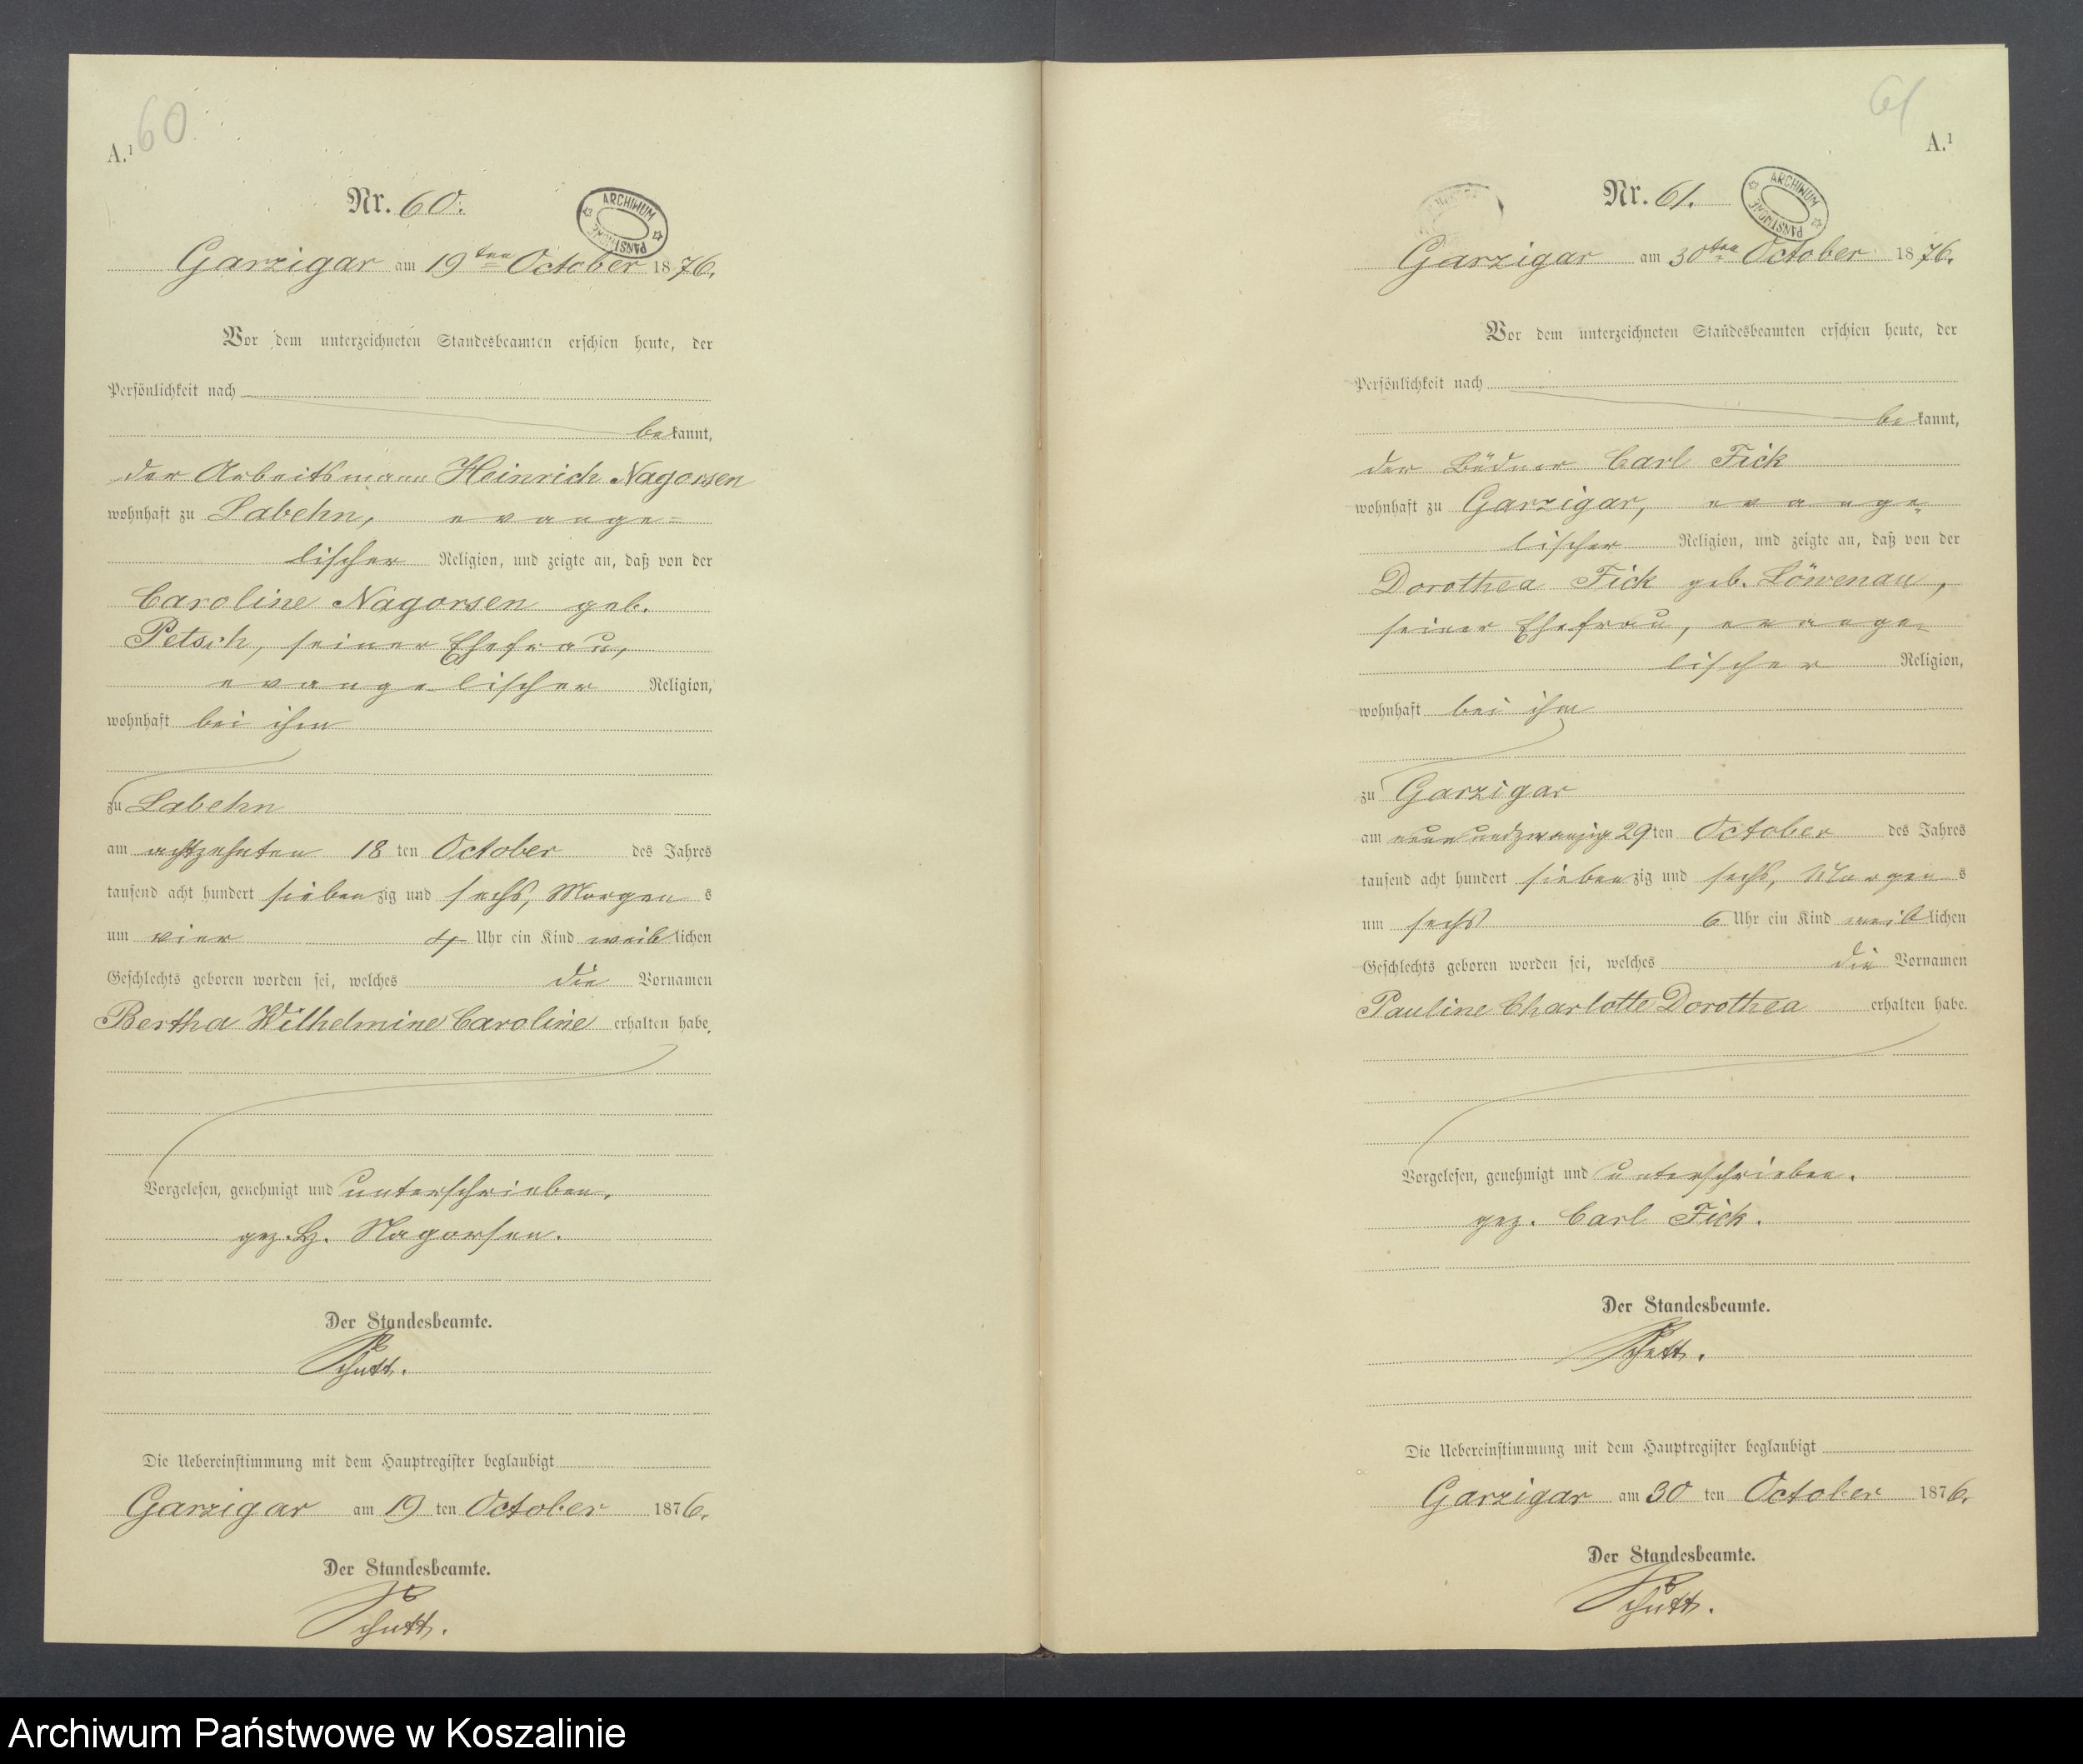 60
A.¹
Nr. 60.
ARCHIWUM PAŃSTWOWE
Garzigar am 19ten October 1876.
Vor dem unterzeichneten Standesbeamten erschien heute, der
Persönlichkeit nach
bekannt,
der Arbeitsmann Heinrich Nagorsen
wohnhaft zu Labehn, evange=
lischer Religion, und zeigte an, daß von der
Caroline Nagorsen geb.
Petsch, seiner Ehefrau,
evangelischer Religion,
wohnhaft bei ihm
zu Labehn
am achtzehnten 18 ten October des Jahres
tausend acht hundert siebenzig und sechs, Morgens
um vier 4 Uhr ein Kind weiblichen
Geschlechts geboren worden sei, welches die Vornamen
Bertha Wilhelmine Caroline erhalten habe.
Vorgelesen, genehmigt und unterschrieben.
gez. H. Nagorsen.
Der Standesbeamte.
Schutt.
Die Uebereinstimmung mit dem Hauptregister beglaubigt
Garzigar am 19 ten October 1876.
Der Standesbeamte.
Schutt.
61
A.¹
Nr. 61.
ARCHIWUM PAŃSTWOWE
Garzigar am 30ten October 1876.
Vor dem unterzeichneten Standesbeamten erschien heute, der
Persönlichkeit nach
bekannt,
der Büdner Carl Fick
wohnhaft zu Garzigar, evange=
lischer Religion, und zeigte an, daß von der
Dorothea Fick geb. Löwenau,
seiner Ehefrau, evange=
lischer Religion,
wohnhaft bei ihm
zu Garzigar
am neunundzwanzig 29 ten October des Jahres
tausend acht hundert siebenzig und sechs, Morgens
um sechs 6 Uhr ein Kind weiblichen
Geschlechts geboren worden sei, welches die Vornamen
Pauline Charlotte Dorothea erhalten habe.
Vorgelesen, genehmigt und unterschrieben.
gez. Carl Fick.
Der Standesbeamte.
Schutt.
Die Uebereinstimmung mit dem Hauptregister beglaubigt
Garzigar am 30 ten October 1876.
Der Standesbeamte.
Schutt.
Archiwum Państwowe w Koszalinie